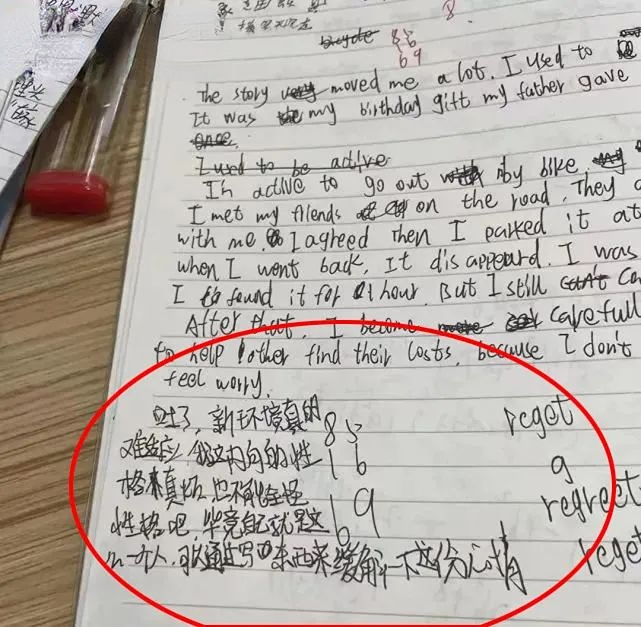 bicycle 85
8
69
The story moved me a lot. I used to
It was my birthday gift my father gave
once.
I used to be active
In active to go out by bike.
I met my friends on the road. They
with me. I agreed then I parked it at
when I went back, It disappeard. I was
I found it for 1 hour. But I still can't
After that, I become carefull
to help other find their losts, because I don't
feel worry.
吐了，新环境真的 85 reget
难适应，我这内向的性 16 g
格来真坏，也不能全怪 69 regreet
性格吧，毕竟自己就是这
么一个人，可以通过写东西来缓解一下这份心情 reget